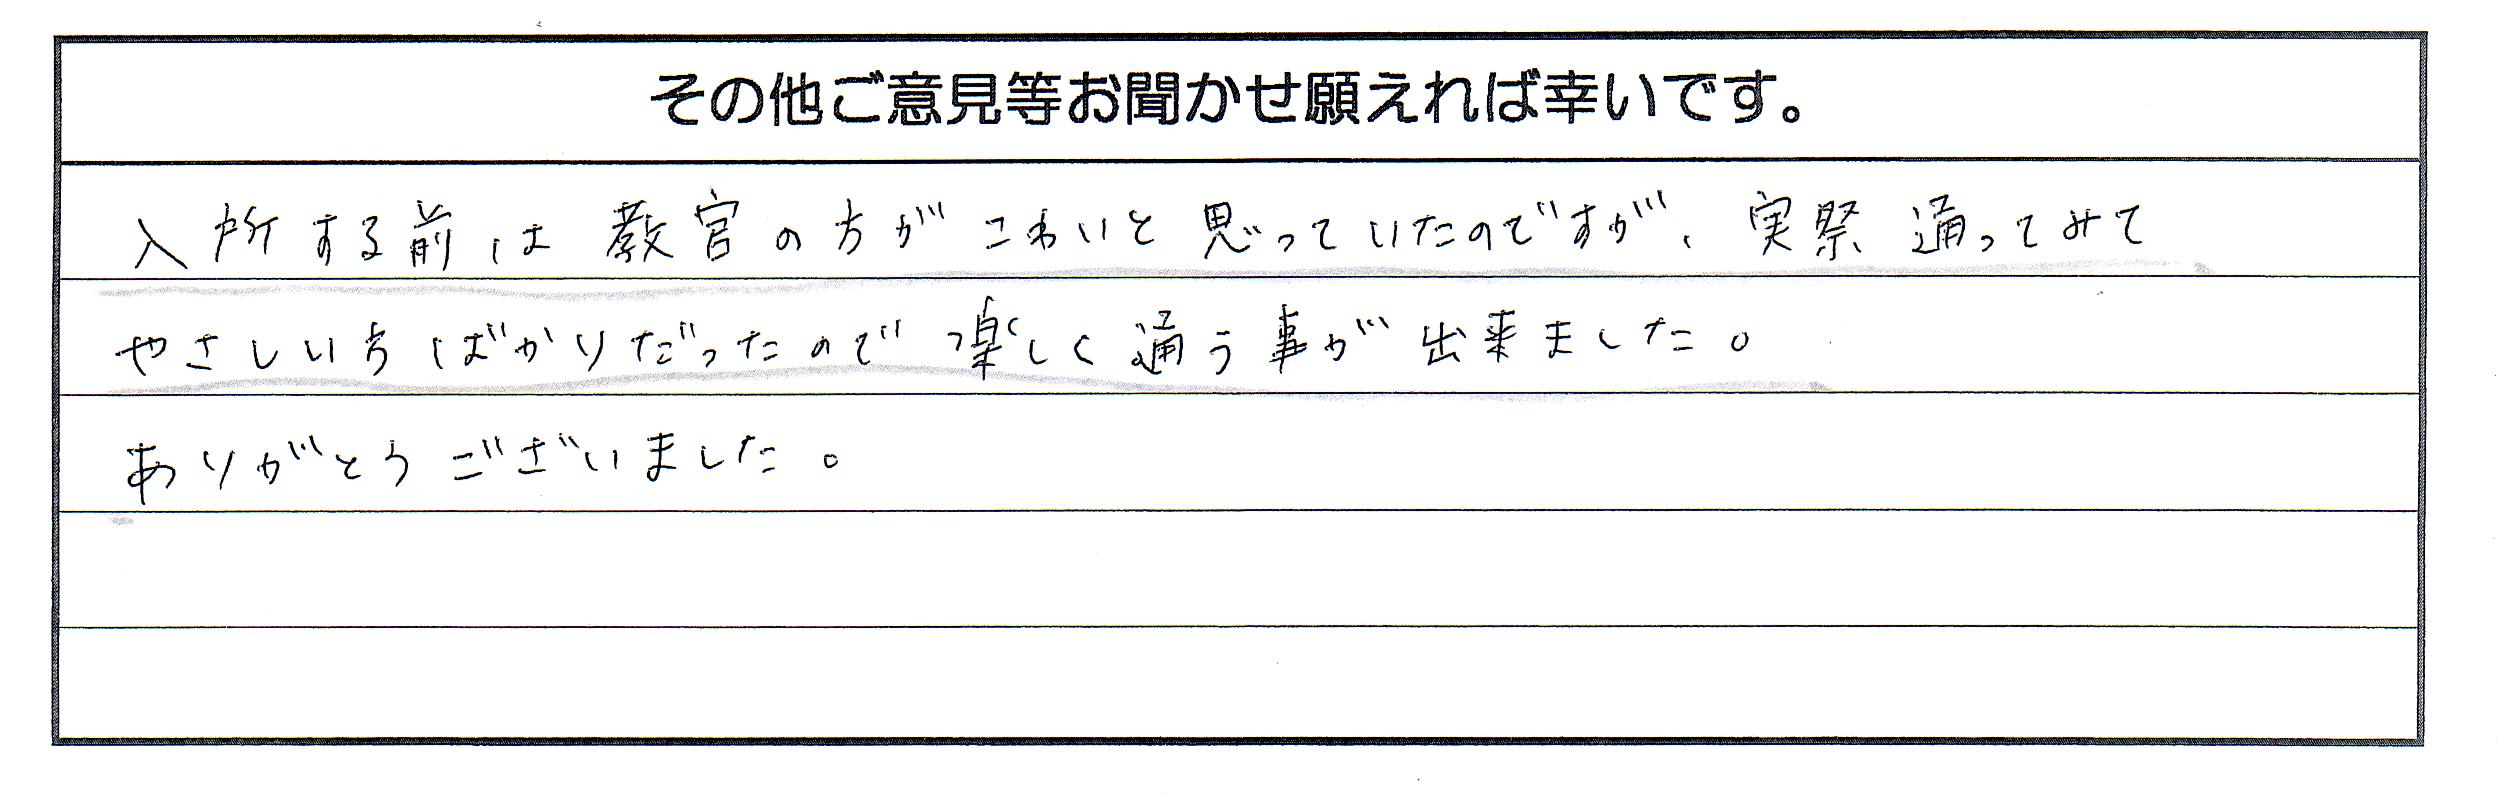 その他ご意見等お聞かせ願えれば幸いです。
入所する前は教官の方がこわいと思っていたのですが、実祭通ってみて
やさしい方ばかりだったので楽しく通う事が出来ました。
ありがとうございました。